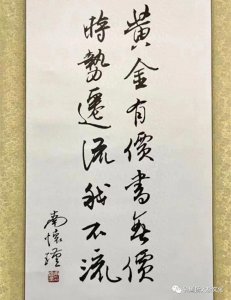 黄金有價書無價
時勢遷流我不流
南懷瑾